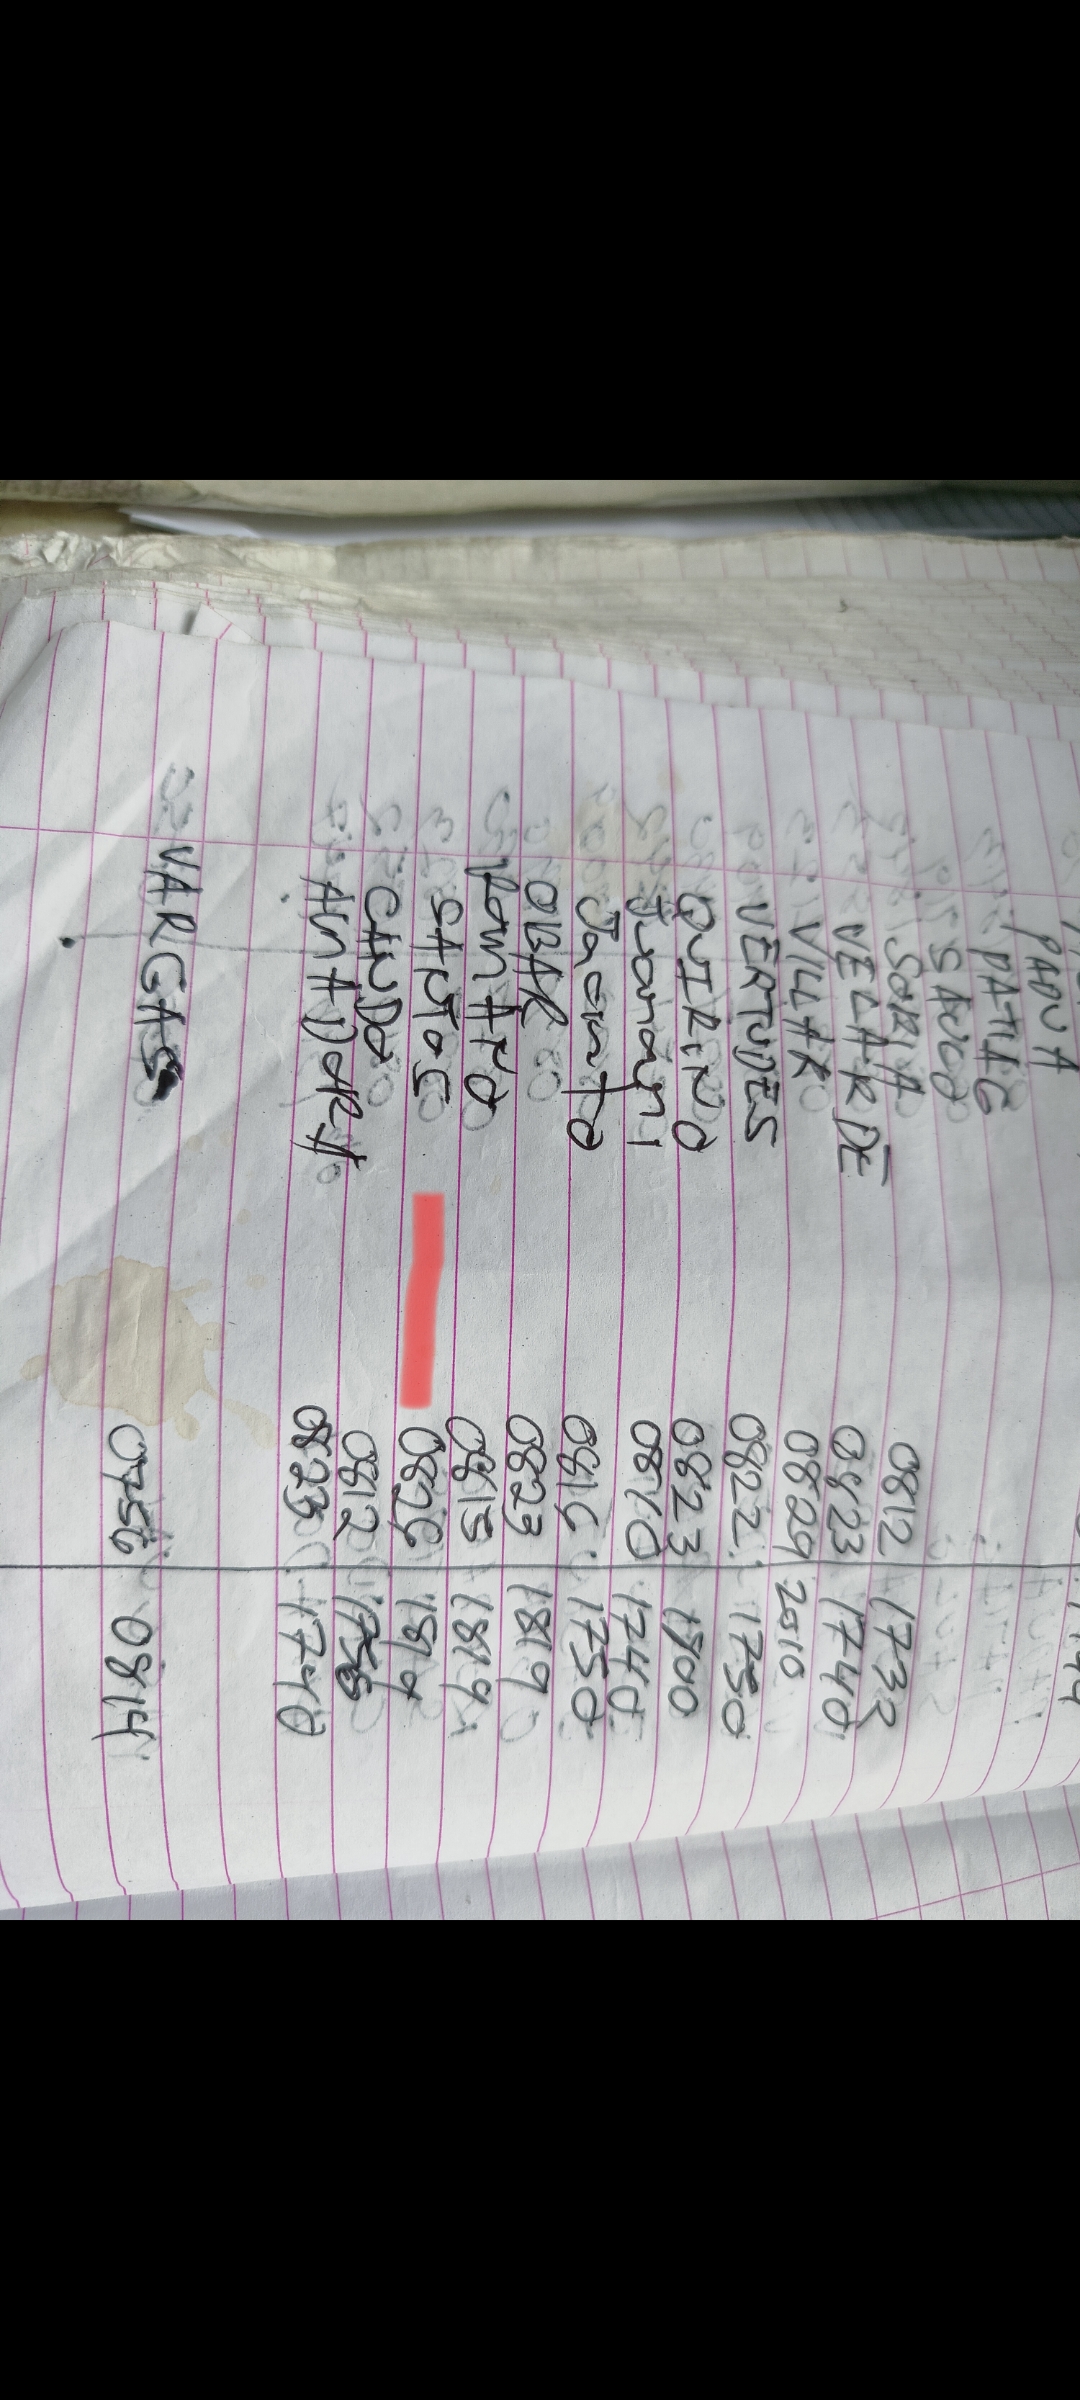 PADUA
PATAG
SAUCO
SORIA 0812 1732
VELARDE 0823 1740
VILLAR 0829 2010
VERTUDES 0822 1750
QUIRINO 0823 1800
Juanani 0810 1740
Jacinto 0816 1750
OBAR 0823 1819
ROMANO 0815 1819
SANTOS 0826 1819
CANDO 0812
AMADOR A 0823 1740
VARGAS 0756 0814